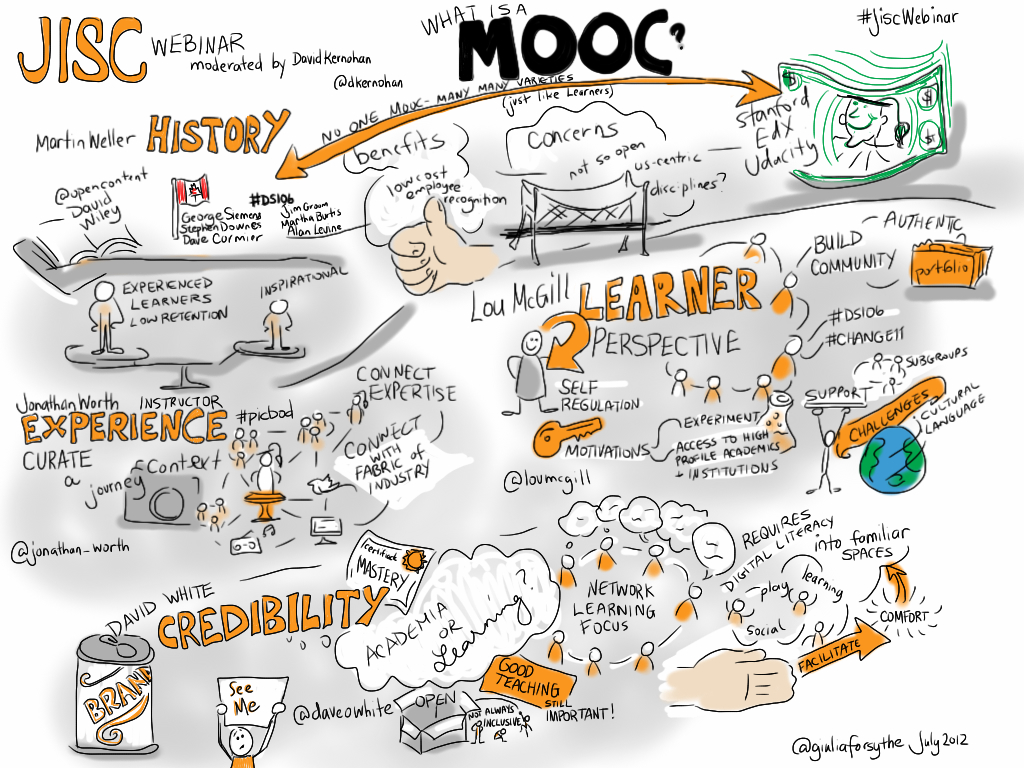 JISC
WEBINAR
moderated by David Kernohan
@dkernohan
WHAT IS A
MOOC?
#jiscWebinar
NO ONE MOOC - MANY MANY VARIETIES
(just like Learners)
Martin Weller
HISTORY
@opencontent
David
Wiley
George Siemens
Stephen Downes
Dave Cormier
#DS106
Jim Groom
Martha Burtis
Alan Levine
benefits
low cost
employee
recognition
concerns
not so open
us-centric
disciplines?
Stanford
EdX
Udacity
$
$
$
EXPERIENCED
LEARNERS
LOW RETENTION
INSPIRATIONAL
INSTRUCTOR
Lou McGill
LEARNER
PERSPECTIVE
SELF
REGULATION
MOTIVATIONS
EXPERIMENT
ACCESS TO HIGH
PROFILE ACADEMICS
+ INSTITUTIONS
@loumcgill
BUILD
COMMUNITY
AUTHENTIC
portfolio
#DS106
#CHANGE11
SUBGROUPS
SUPPORT
CHALLENGES
CULTURAL
LANGUAGE
Jonathan Worth
EXPERIENCE
#picbod
CURATE
a
journey
Context
CONNECT
EXPERTISE
CONNECT
WITH
FABRIC of
INDUSTRY
@jonathan_worth
DAVID WHITE
CREDIBILITY
BRAND
See
Me
@daveowhite
certificate
MASTERY
ACADEMIA
OR
Learning?
OPEN
NOT ALWAYS
INCLUSIVE
GOOD
TEACHING
STILL
IMPORTANT!
NETWORK
LEARNING
FOCUS
REQUIRES
DIGITAL LITERACY
play
learning
social
into familiar
SPACES
COMFORT
FACILITATE
@giuliaforsythe July 2012